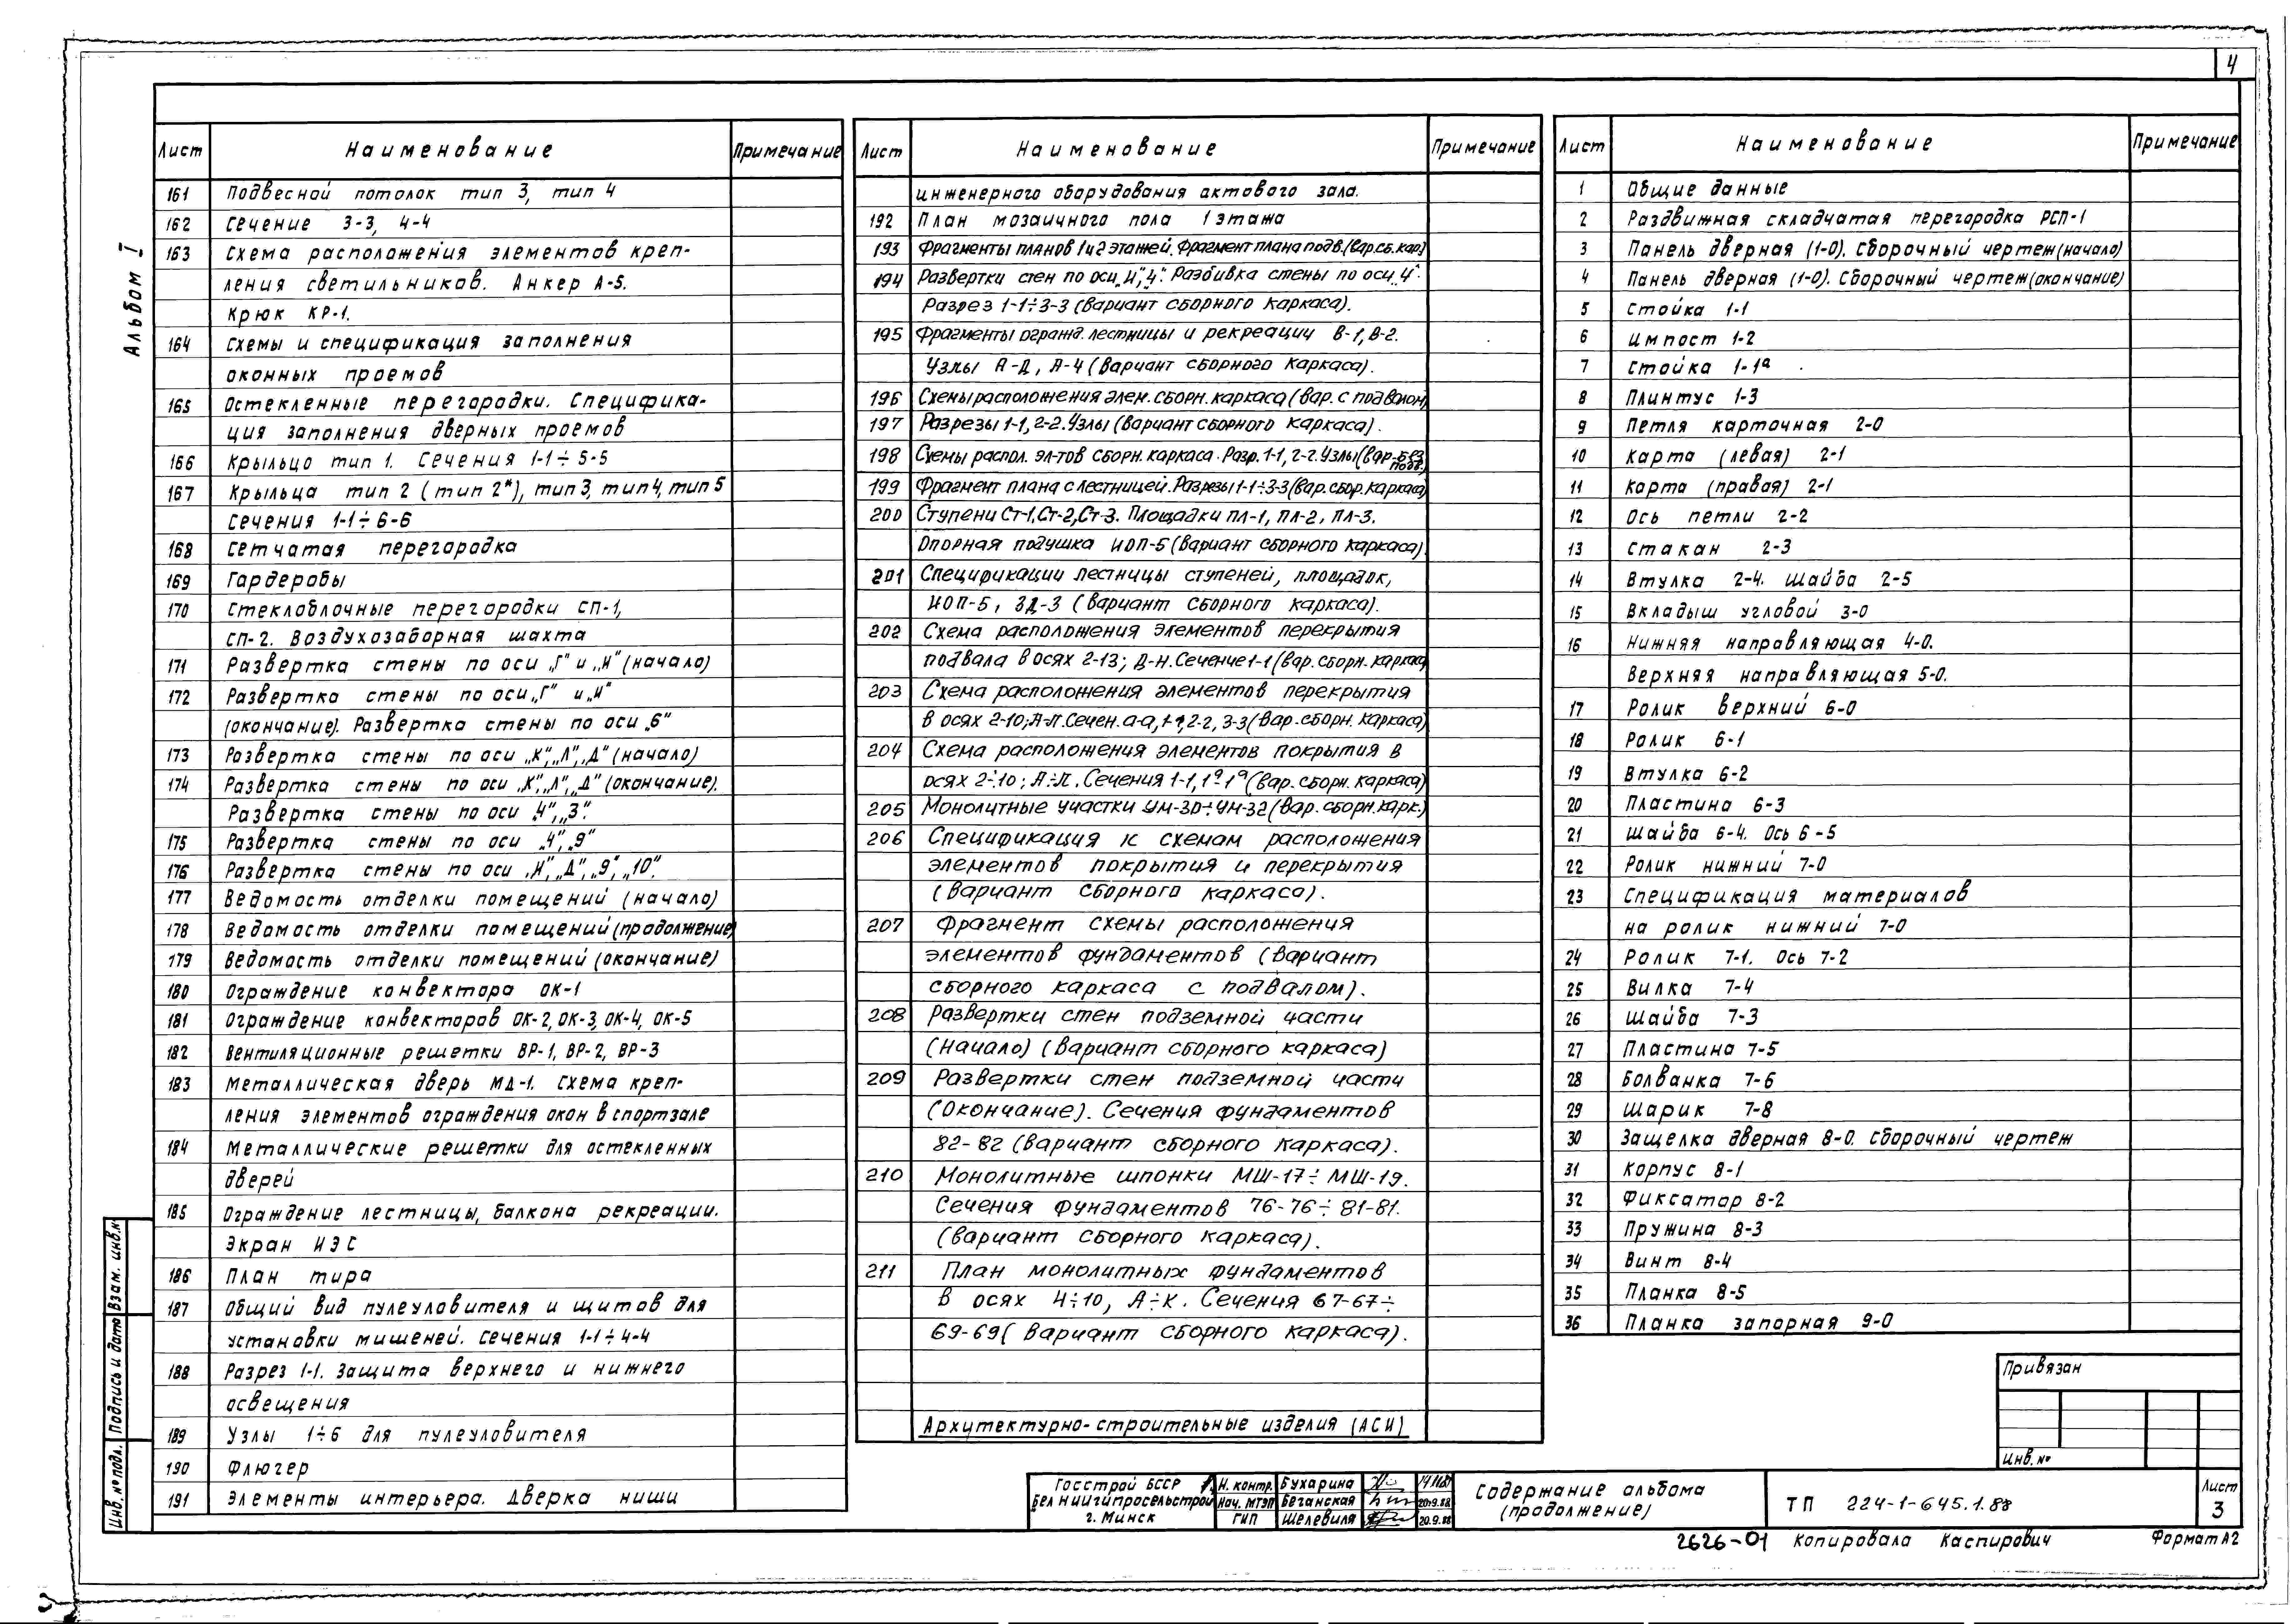 4
Альбом I
Лист Наименование Примечание
161 Подвесной потолок тип 3, тип 4
162 Сечение 3-3, 4-4
163 Схема расположения элементов креп-
ления светильников. Анкер А-5.
Крюк КР-1.
164 Схемы и спецификация заполнения
оконных проемов
165 Остекленные перегородки. Специфика-
ция заполнения дверных проемов
166 Крыльцо тип 1. Сечения 1-1÷5-5
167 Крыльца тип 2 (тип 2*), тип 3, тип 4, тип 5
Сечения 1-1÷6-6
168 Сетчатая перегородка
169 Гардеробы
170 Стеклоблочные перегородки СП-1,
СП-2. Воздухозаборная шахта
171 Развертка стены по оси „Г" и „И" (начало)
172 Развертка стены по оси „Г" и „И"
(окончание). Развертка стены по оси „6"
173 Развертка стены по оси „К", „Л", „Д" (начало)
174 Развертка стены по оси „К", „Л", „Д" (окончание).
Развертка стены по оси „4", „3".
175 Развертка стены по оси „4", „9"
176 Развертка стены по оси „И", „Д", „9", „10".
177 Ведомость отделки помещений (начало)
178 Ведомость отделки помещений (продолжение)
179 Ведомость отделки помещений (окончание)
180 Ограждение конвектора ОК-1
181 Ограждение конвекторов ОК-2, ОК-3, ОК-4, ОК-5
182 Вентиляционные решетки ВР-1, ВР-2, ВР-3
183 Металлическая дверь МД-1. Схема креп-
ления элементов ограждения окон в спортзале
184 Металлические решетки для остекленных
дверей
185 Ограждение лестницы, балкона рекреации.
Экран ИЭС
186 План тира
187 Общий вид пулеуловителя и щитов для
установки мишеней. Сечения 1-1÷4-4
188 Разрез 1-1. Защита верхнего и нижнего
освещения
189 Узлы 1÷6 для пулеуловителя
190 Флюгер
191 Элементы интерьера. Дверка ниши
Лист Наименование Примечание
инженерного оборудования актового зала.
192 План мозаичного пола 1 этажа
193 Фрагменты планов 1 и 2 этажей. Фрагмент плана подв. (вар. сб. кар.)
194 Развертки стен по оси „И", „4". Разбивка стены по оси „4".
Разрез 1-1÷3-3 (вариант сборного каркаса).
195 Фрагменты огражд. лестницы и рекреации В-1, В-2.
Узлы А-Д, А-4 (вариант сборного каркаса).
196 Схемы расположения элем. сборн. каркаса (вар. с подвалом)
197 Разрезы 1-1, 2-2. Узлы (вариант сборного каркаса).
198 Схемы распол. эл-тов сборн. каркаса. Разр. 1-1, 2-2. Узлы (вар. без подв.)
199 Фрагмент плана с лестницей. Разрезы 1-1÷3-3 (вар. сбор. каркаса)
200 Ступени Ст-1, Ст-2, Ст-3. Площадки ПЛ-1, ПЛ-2, ПЛ-3.
Опорная подушка ИОП-5 (вариант сборного каркаса)
201 Спецификации лестницы ступеней, площадок,
ИОП-5, ЗД-3 (вариант сборного каркаса).
202 Схема расположения элементов перекрытия
подвала в осях 2-13; Д-Н. Сечение 1-1 (вар. сборн. каркаса
203 Схема расположения элементов перекрытия
в осях 2-10; А-Л. Сечен. а-а, 1-1, 2-2, 3-3 (вар. сборн. каркаса)
204 Схема расположения элементов покрытия в
осях 2÷10; А÷Л. Сечения 1-1, 1ª-1ª (вар. сборн. каркаса)
205 Монолитные участки УМ-30÷УМ-32 (вар. сборн. карк.)
206 Спецификация к схемам расположения
элементов покрытия и перекрытия
(вариант сборного каркаса).
207 Фрагмент схемы расположения
элементов фундаментов (вариант
сборного каркаса с подвалом).
208 Развертки стен подземной части
(начало) (вариант сборного каркаса)
209 Развертки стен подземной части
(окончание). Сечения фундаментов
82-82 (вариант сборного каркаса).
210 Монолитные шпонки МШ-17÷МШ-19.
Сечения фундаментов 76-76÷81-81.
(вариант сборного каркаса).
211 План монолитных фундаментов
в осях 4÷10, А÷К. Сечения 67-67÷
69-69 (вариант сборного каркаса).
Архитектурно-строительные изделия (АСИ)
Лист Наименование Примечание
1 Общие данные
2 Раздвижная складчатая перегородка РСП-1
3 Панель дверная (1-0). Сборочный чертеж (начало)
4 Панель дверная (1-0). Сборочный чертеж (окончание)
5 Стойка 1-1
6 Импост 1-2
7 Стойка 1-1ª
8 Плинтус 1-3
9 Петля карточная 2-0
10 Карта (левая) 2-1
11 Карта (правая) 2-1
12 Ось петли 2-2
13 Стакан 2-3
14 Втулка 2-4. Шайба 2-5
15 Вкладыш угловой 3-0
16 Нижняя направляющая 4-0.
Верхняя направляющая 5-0.
17 Ролик верхний 6-0
18 Ролик 6-1
19 Втулка 6-2
20 Пластина 6-3
21 Шайба 6-4. Ось 6-5
22 Ролик нижний 7-0
23 Спецификация материалов
на ролик нижний 7-0
24 Ролик 7-1. Ось 7-2
25 Вилка 7-4
26 Шайба 7-3
27 Пластина 7-5
28 Болванка 7-6
29 Шарик 7-8
30 Защелка дверная 8-0. Сборочный чертеж
31 Корпус 8-1
32 Фиксатор 8-2
33 Пружина 8-3
34 Винт 8-4
35 Планка 8-5
36 Планка запорная 9-0
Привязан
Инв. №
Инв. № подл. Подпись и дата Взам. инв. №
Госстрой БССР
БелНИИгипросельстрой
г. Минск
Н. контр. Бухарина
Нач. МТЭП Беганская 20.9.88
ГИП Шелевиля 20.9.88
Содержание альбома
(продолжение)
ТП 224-1-645.1.88
Лист
3
2626-01 Копировала Каспирович Формат А2